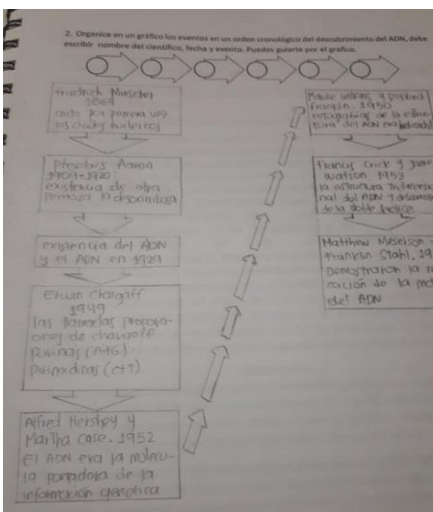 2. Organice en un gráfico los eventos en un orden cronológico del descubrimiento del ADN, debe
escribir nombre del científico, fecha y evento. Puedes guiarte por el grafico.
Friedrich Miescher
1869
por primera vez
los
Phoebus Aaron
1909-1920
existencia de otra
pentosa la
existencia del ADN
y el ARN en 1929
Erwin Chargaff
1949
las famosas proporci-
ones de chargaff
purinas (A+G)
Pirimidinas (C+T)
Alfred Hershey y
Martha Case. 1952
El ADN era la molecu-
la portadora de la
información genetica
franklin. 1950
fotografias de la
del ADN era
Francis Crick y
watson 1953
la estructura
nal del ADN y
de la doble helice.
Matthew Meselson
Franklin Stahl, 19
Demostraron la
ración de la
del ADN